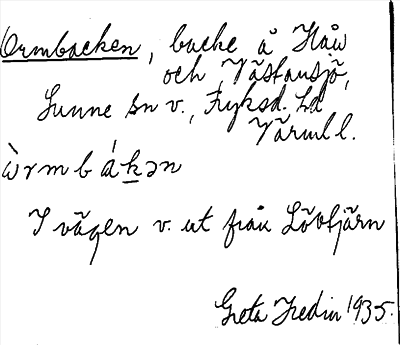 Ormbacken, backe å Håw
och Västansjö,
Sunne sn v., Fryksd. hd
Värml l.
ὼrmbákən
I vägen v. ut från Lövtjärn
Greta Hedin 1935.